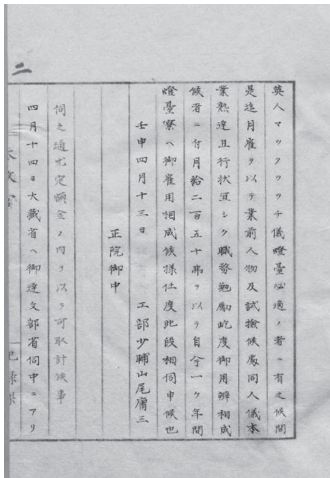 英人マックワウチ儀燈臺必適ノ者ニ有之候間
是迄月雇ヲ以テ業前人物及試撿候處同人儀本
業熟達且行状宜シク職務勉勵屹度御用辨相成
候者ニ付月給二百五十弗ヲ以テ自今一ケ年間
燈臺寮ヘ御雇用相成候様仕度此段相伺申候也
壬申四月十三日 工部少輔山尾庸三
正院御中
伺之通定額金ノ内ヲ以テ可取計候事
四月十四日大藏省ヘ御達文部省伺中ニアリ
二